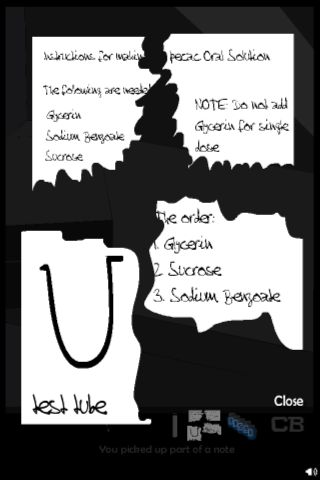 Instructions for making Ipecac Oral Solution
The following are needed
Glycerin
Sodium Benzoate
Sucrose
NOTE: Do not add
Glycerin for single
dose
The order:
1. Glycerin
2. Sucrose
3. Sodium Benzoate
test tube
Close
CB
You picked up part of a note